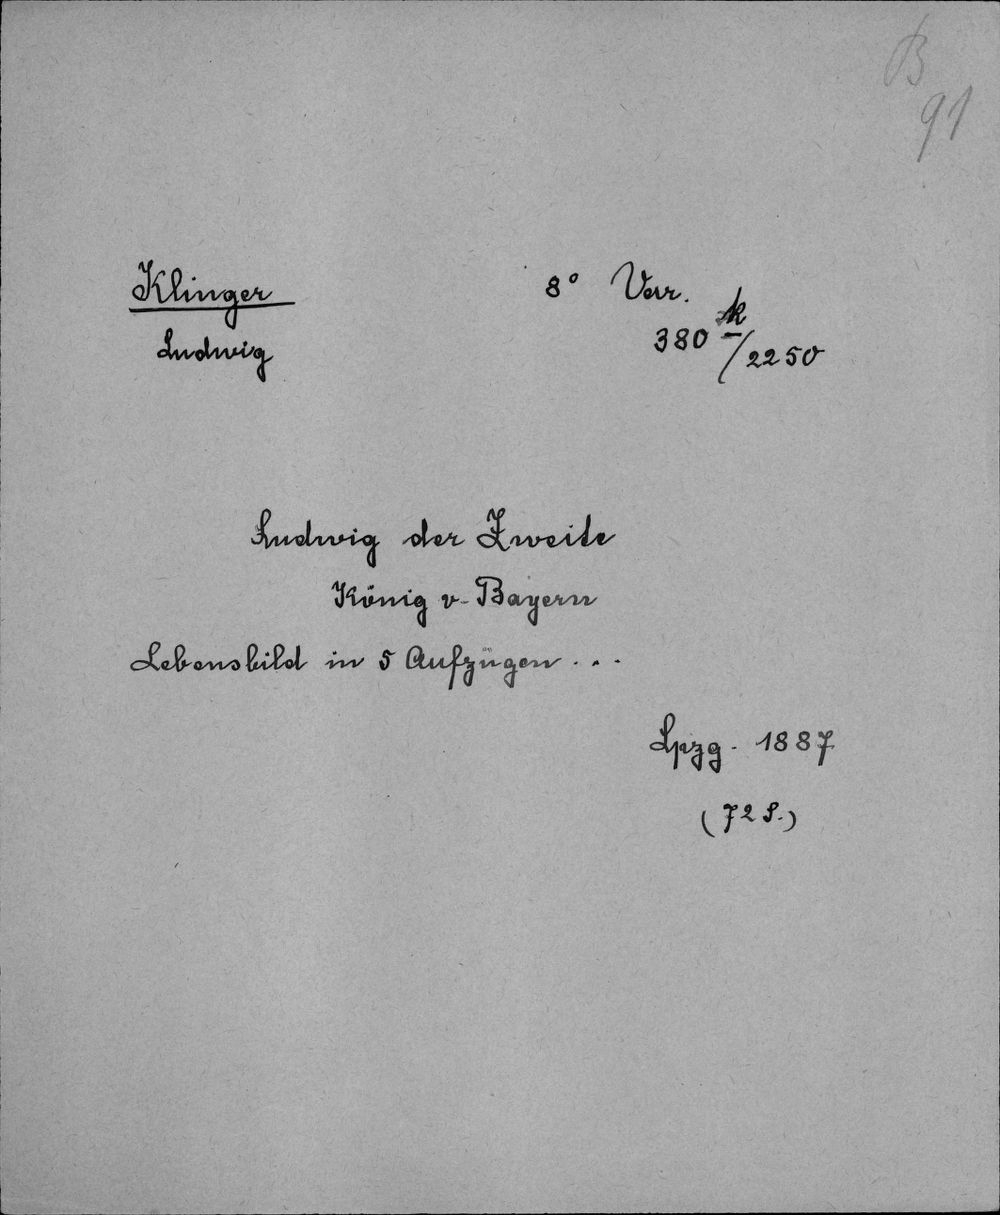 B
91
Klinger
Ludwig
8° Var.
380 k/2250
Ludwig der Zweite
König v. Bayern
Lebensbild in 5 Aufzügen...
Lpzg. 1887
(72 S.)